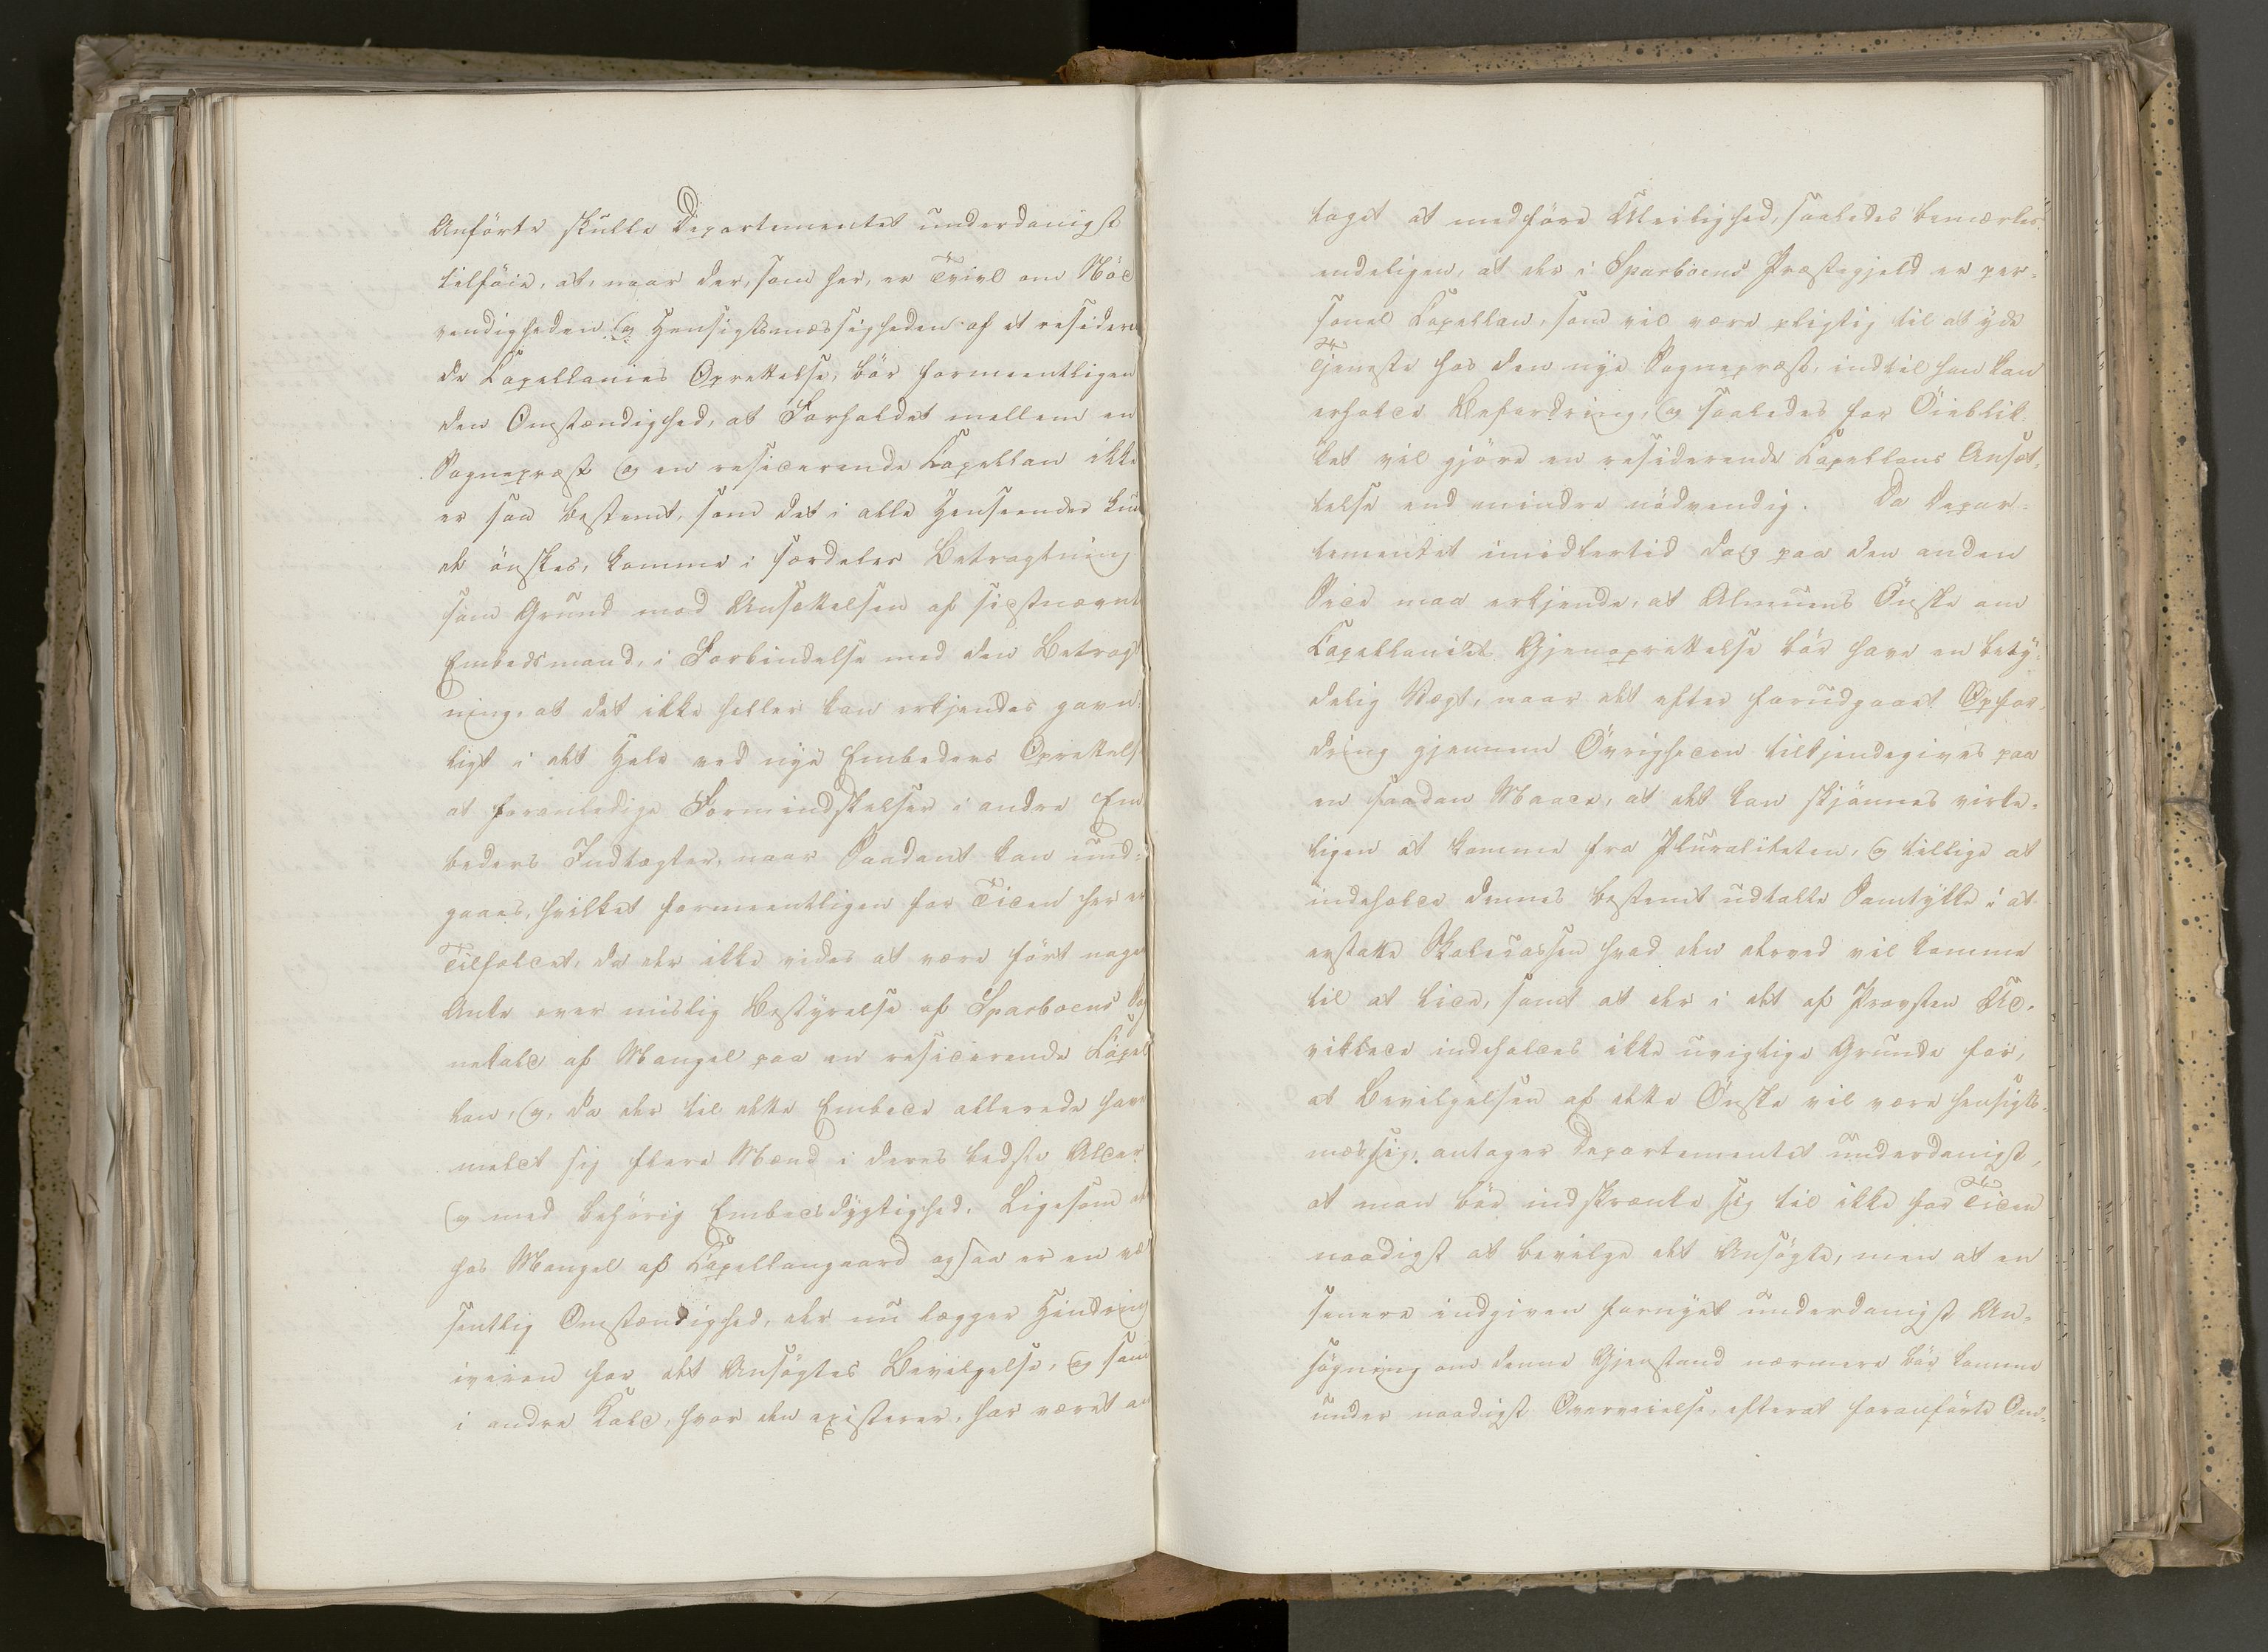 Anførte skulle Departementet underdanigst
tilføie, at, naar der, som her, er Tvivl om Nød
vendigheden og Hensigtsmæssigheden af et residere
de Capellanies Oprettelse, bør formeentligen
den Omstændighed, at Forholdet mellem en
Sognepræst og en residerende Capellan ikke
er saa bestemt, som det i alle Henseender kun
de ønskes, komme i særdeles Betragtning
som Grund mod Ansættelsen af sidstnævnt
Embedsmand, i Forbindelse med den Betragt
ning, at det ikke heller kan erkjendes gavn-
ligt i det Hele ved nye Embeders Oprettelse
at foranledige Formindskelser i andre Em
beders Indtægter, naar Saadant kan und-
gaaes, hvilket formeentligen for Tiden her er
Tilfældet, da der ikke vides at være ført noge
Anke over mislig Bestyrelse af Sparboens Sog
nekald af Mangel paa en residerende Capel
lan, og, da der til dette Embede allerede have
meldt sig flere Mænd i deres bedste Alder
og med behørig Embedsdygtighed. Ligesom det
hos Mangel af Capellangaard ogsaa er en væ
sentlig Omstændighed, der nu lægger Hindring
iveien for det Ansøgtes Bevilgelse, og som
i andre Kald, hvor den existerer, har været an
taget at medføre Uleilighed, saaledes bemærkes
endeligen, at der i Sparboens Præstegjeld er per-
sonel Capellan, som vil være pligtig til at yde
Tjeneste hos den nye Sognepræst, indtil han kan
erholde Befordring, og saaledes for Øieblik-
ket vil gjøre en residerende Capellans Ansæt-
telse end mindre nødvendig. Da Depar-
tementet imidlertid dog paa den anden
Side maa erkjende, at Almuens Ønske om
Capellaniets Gjenoprettelse bør have en bety-
delig Vægt, naar det efter forudgaaet Opfor-
dring gjennem Øvrigheden tilkjendegives paa
en saadan Maade, at det kan skjønnes virke-
ligen at komme fra Pluraliteten, og tillige at
indeholde dennes bestemt udtalte Samtykke i at
erstatte Skolecassen hvad den derved vil komme
til at lide, samt at der i det af Provsten Ud-
viklede indeholdes ikke uvigtige Grunde for,
at Bevilgelsen af dette Ønske vil være hensigts-
mæssig, antager Departementet underdanigst,
at man bør indskrænke sig til ikke for Tiden
naadigst at bevilge det Ansøgte, men at en
senere indgiven fornyet underdanigst An-
søgning om denne Gjenstand nærmere bør komme
under naadigst Overveielse, efterat foranførte Om-